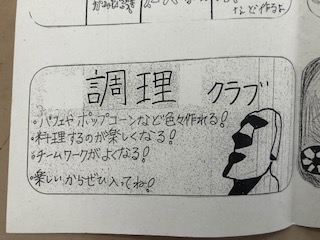 など作るよ
調理 クラブ
・パフェやポップコーンなど色々作れる!
・料理するのが楽しくなる!
・チームワークがよくなる!
・楽しいからぜひ入ってね!